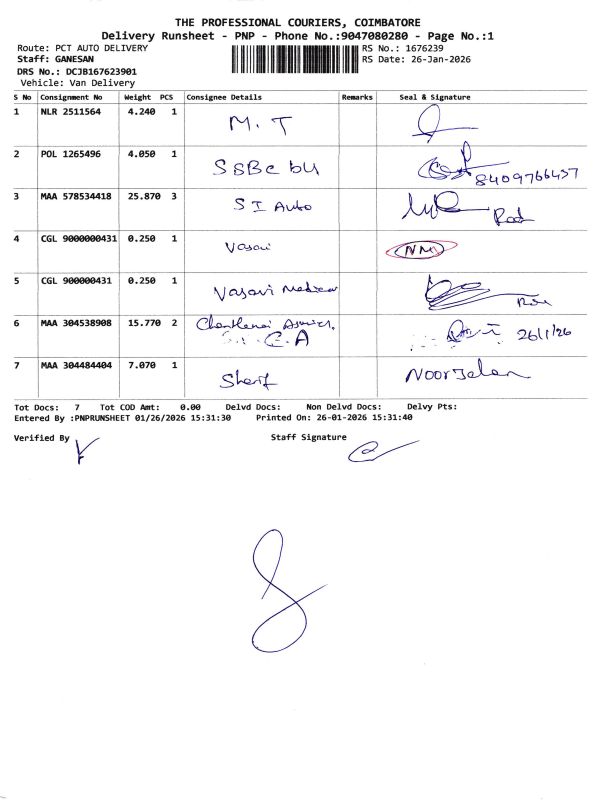 THE PROFESSIONAL COURIERS, COIMBATORE
Delivery Runsheet - PNP - Phone No.:9047080280 - Page No.:1
Route: PCT AUTO DELIVERY
RS No.: 1676239
Staff: GANESAN
RS Date: 26-Jan-2026
DRS No.: DCJB167623901
Vehicle: Van Delivery
S No Consignment No Weight PCS Consignee Details Remarks Seal & Signature
1 NLR 2511564 4.240 1 M. T
2 POL 1265496 4.050 1 8409766457
3 MAA 578534418 25.870 3 S I Auto
4 CGL 9000000431 0.250 1 Vasavi NM
5 CGL 900000431 0.250 1 Vasavi Medical
6 MAA 304538908 15.770 2 26/1/26
7 MAA 304484404 7.070 1 Sherif Noor Jalan
Tot Docs: 7 Tot COD Amt: 0.00 Delvd Docs: Non Delvd Docs: Delvy Pts:
Entered By :PNPRUNSHEET 01/26/2026 15:31:30 Printed On: 26-01-2026 15:31:40
Verified By Staff Signature